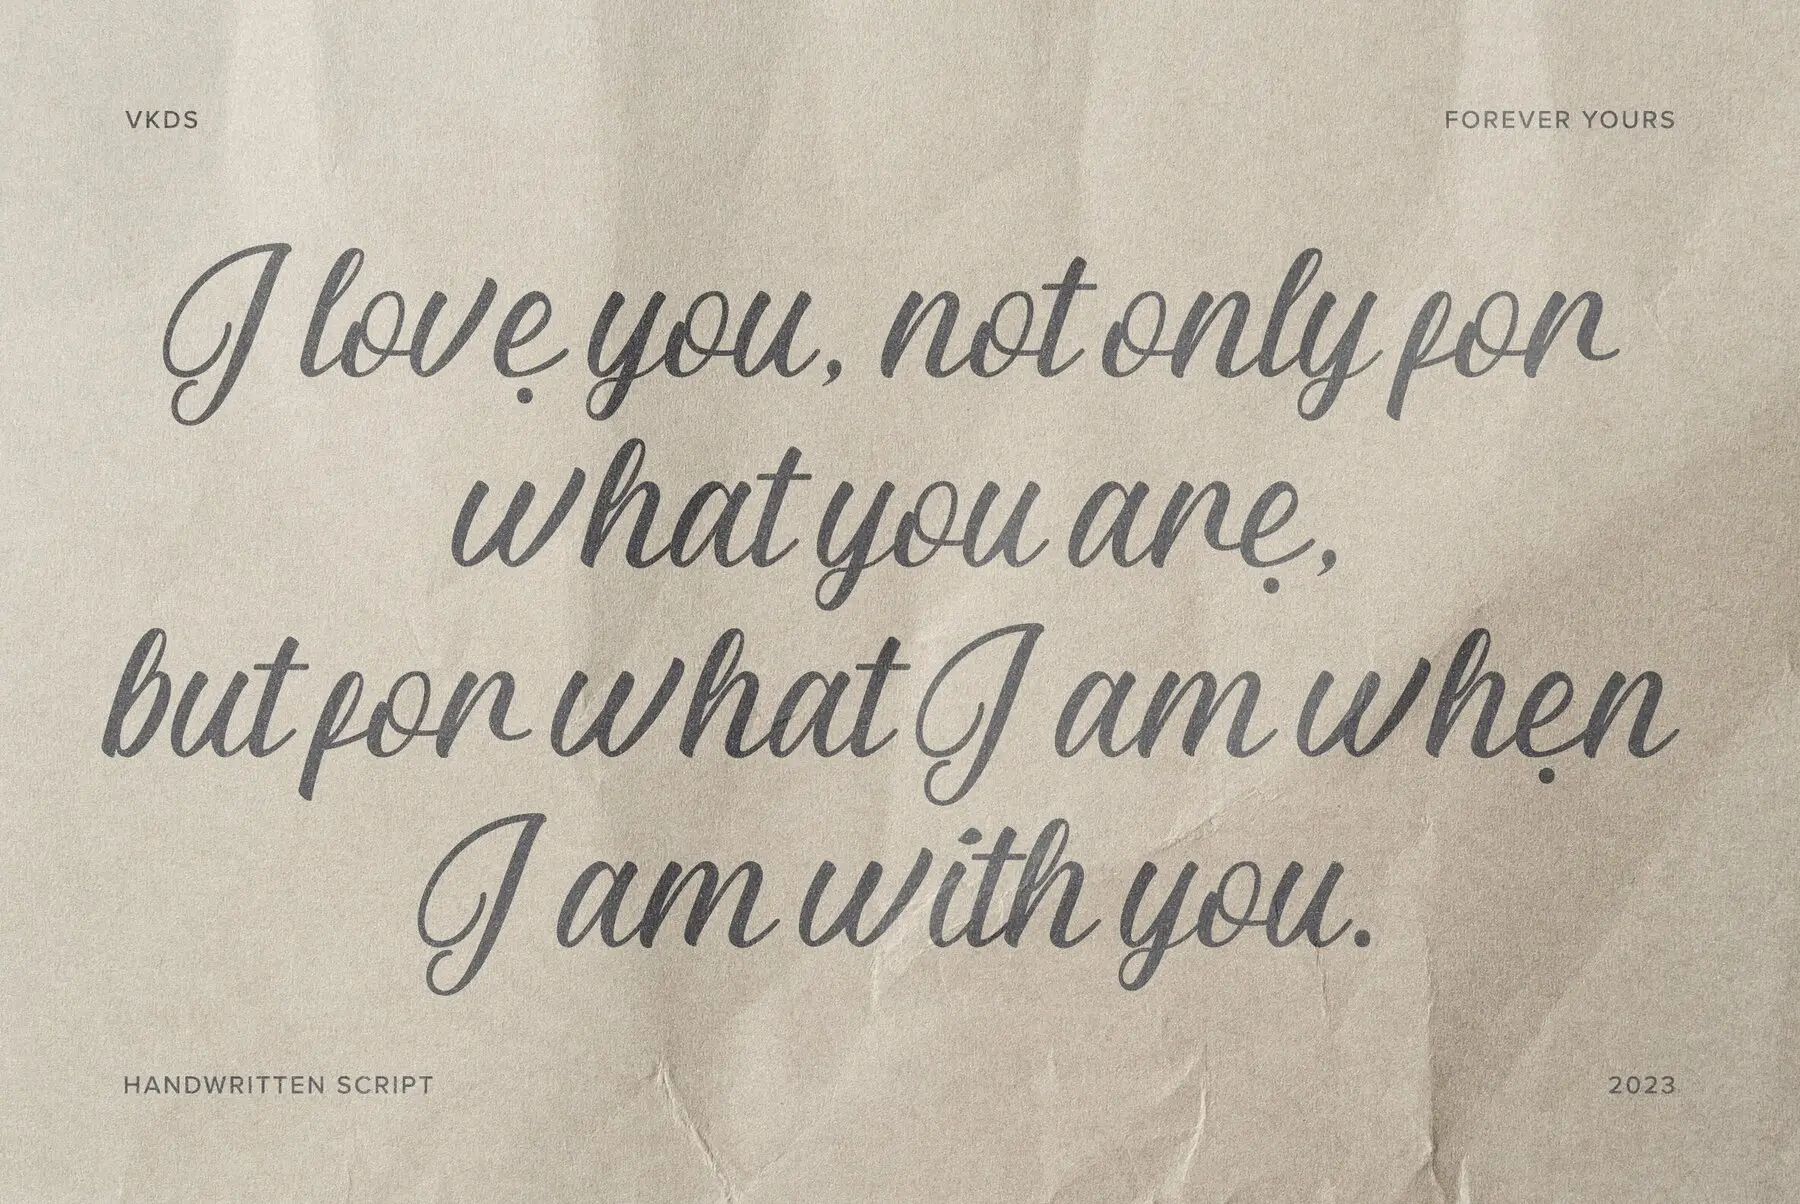 VKDS
FOREVER YOURS
I lovẹ you, not only for
what you arẹ,
but for what I am whẹn
I am with you.
HANDWRITTEN SCRIPT
2023